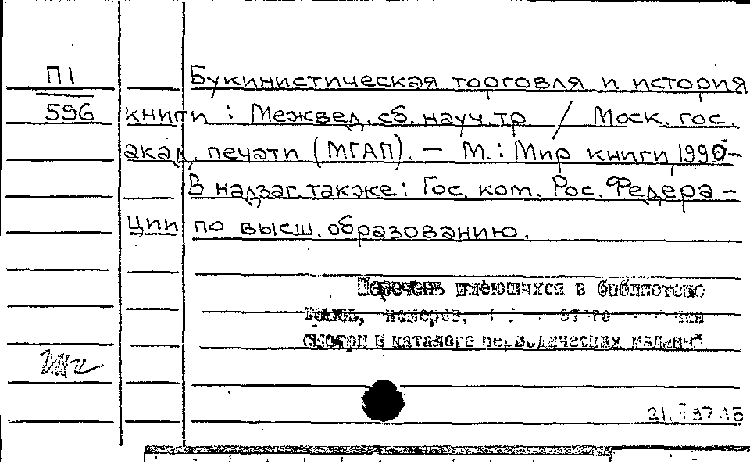 П1
596
Букинистическая торговля и история
книги : Межвед. сб. науч. тр / Моск. гос.
акад. печати (МГАП). – М. : Мир книги, 1990-
В надзаг. также: Гос. ком. Рос. Федера-
ции по высш. образованию.
Перечень имеющихся в библиотеке
томов, номеров,
смотри в каталоге периодических изданий